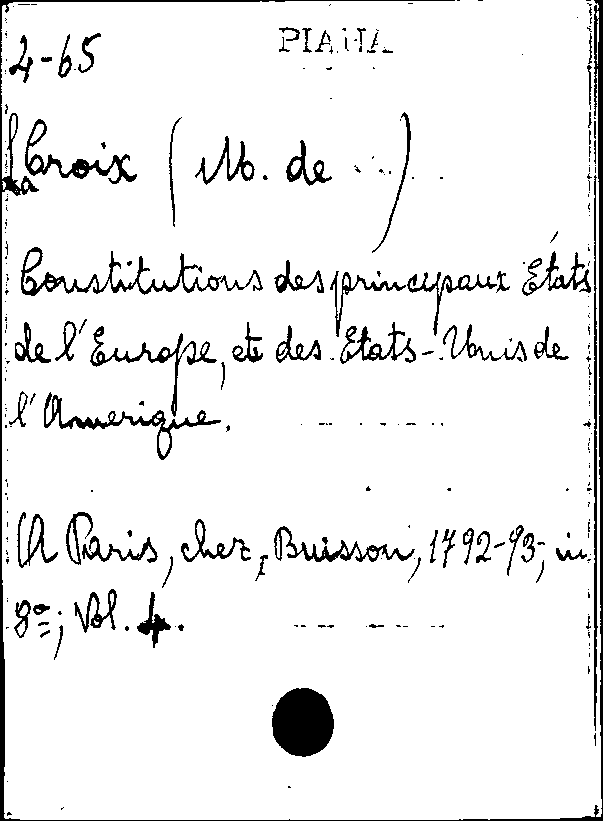 4-65
PIANA
La Croix (M. de )
Constitutions des principaux États
de l'Europe, et des Etats-Unis de
l'Amerique.
A Paris, chez, Buisson, 1792-93, in
8º; Vol. 4.